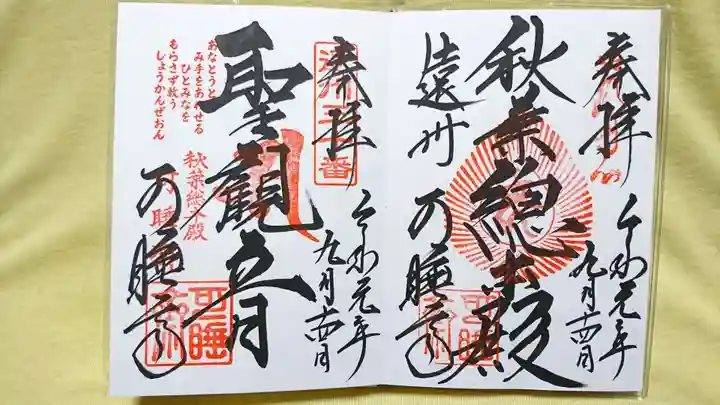 奉拝
秋葉總本殿
遠州
可睡斎
令和元年
九月十四日
奉拝
遠州一番
聖観音
可睡斎
令和元年
九月十四日
あなとうと
み手をあわせる
ひとみなを
もらさず救う
しょうかんぜおん
秋葉総本殿
可睡
可睡